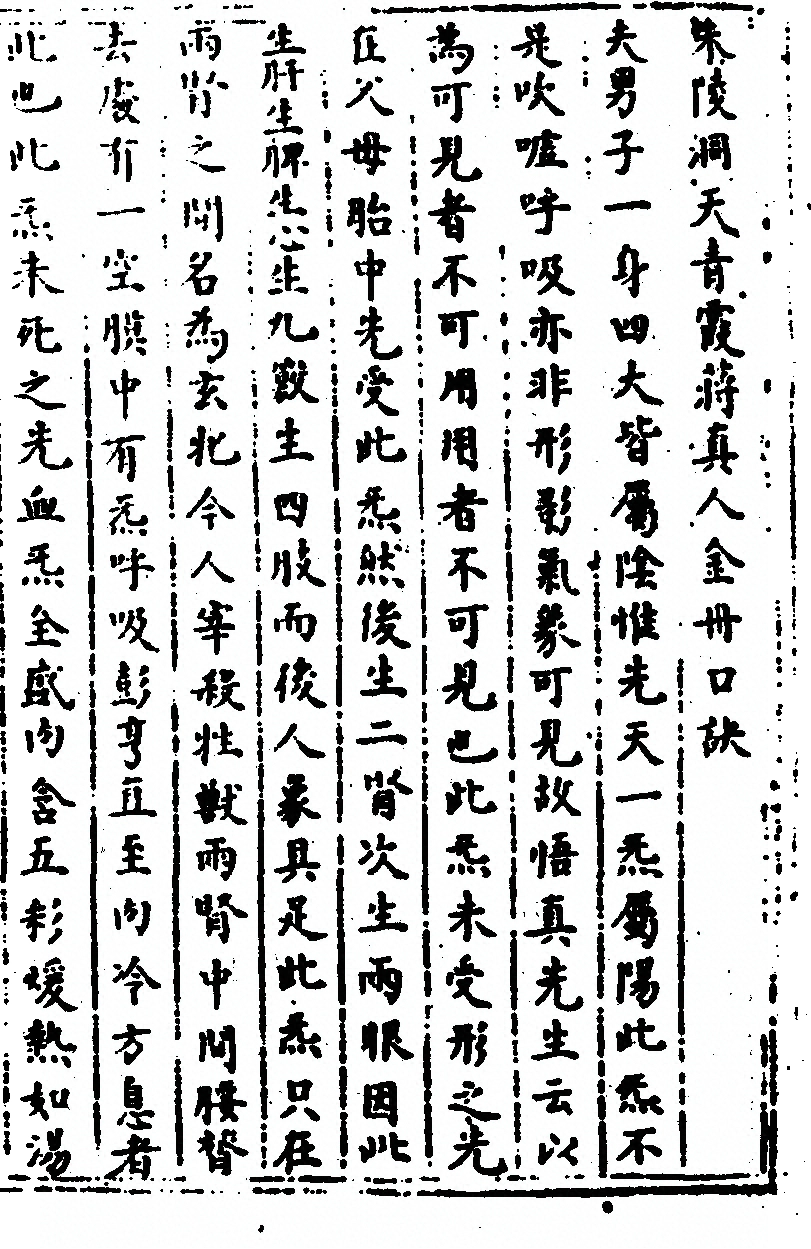 朱陵洞天青霞蔣真人金丹口訣
夫男子一身四大皆屬陰惟先天一炁屬陽此炁不
是吹噓呼吸亦非形影氣象可見故悟真先生云以
為可見者不可用用者不可見也此炁未受形之先
在父母胎中先受此炁然後生二腎次生兩眼因此
生肝生脾生心生九竅生四肢而後人象具足此炁只在
兩腎之間名為玄牝今人宰殺牲獸兩腎中間腰脊
去處有一空膜中有炁呼吸彭亨直至肉冷方息者
此也此炁未死之先血炁全盛肉含五彩煖熱如湯